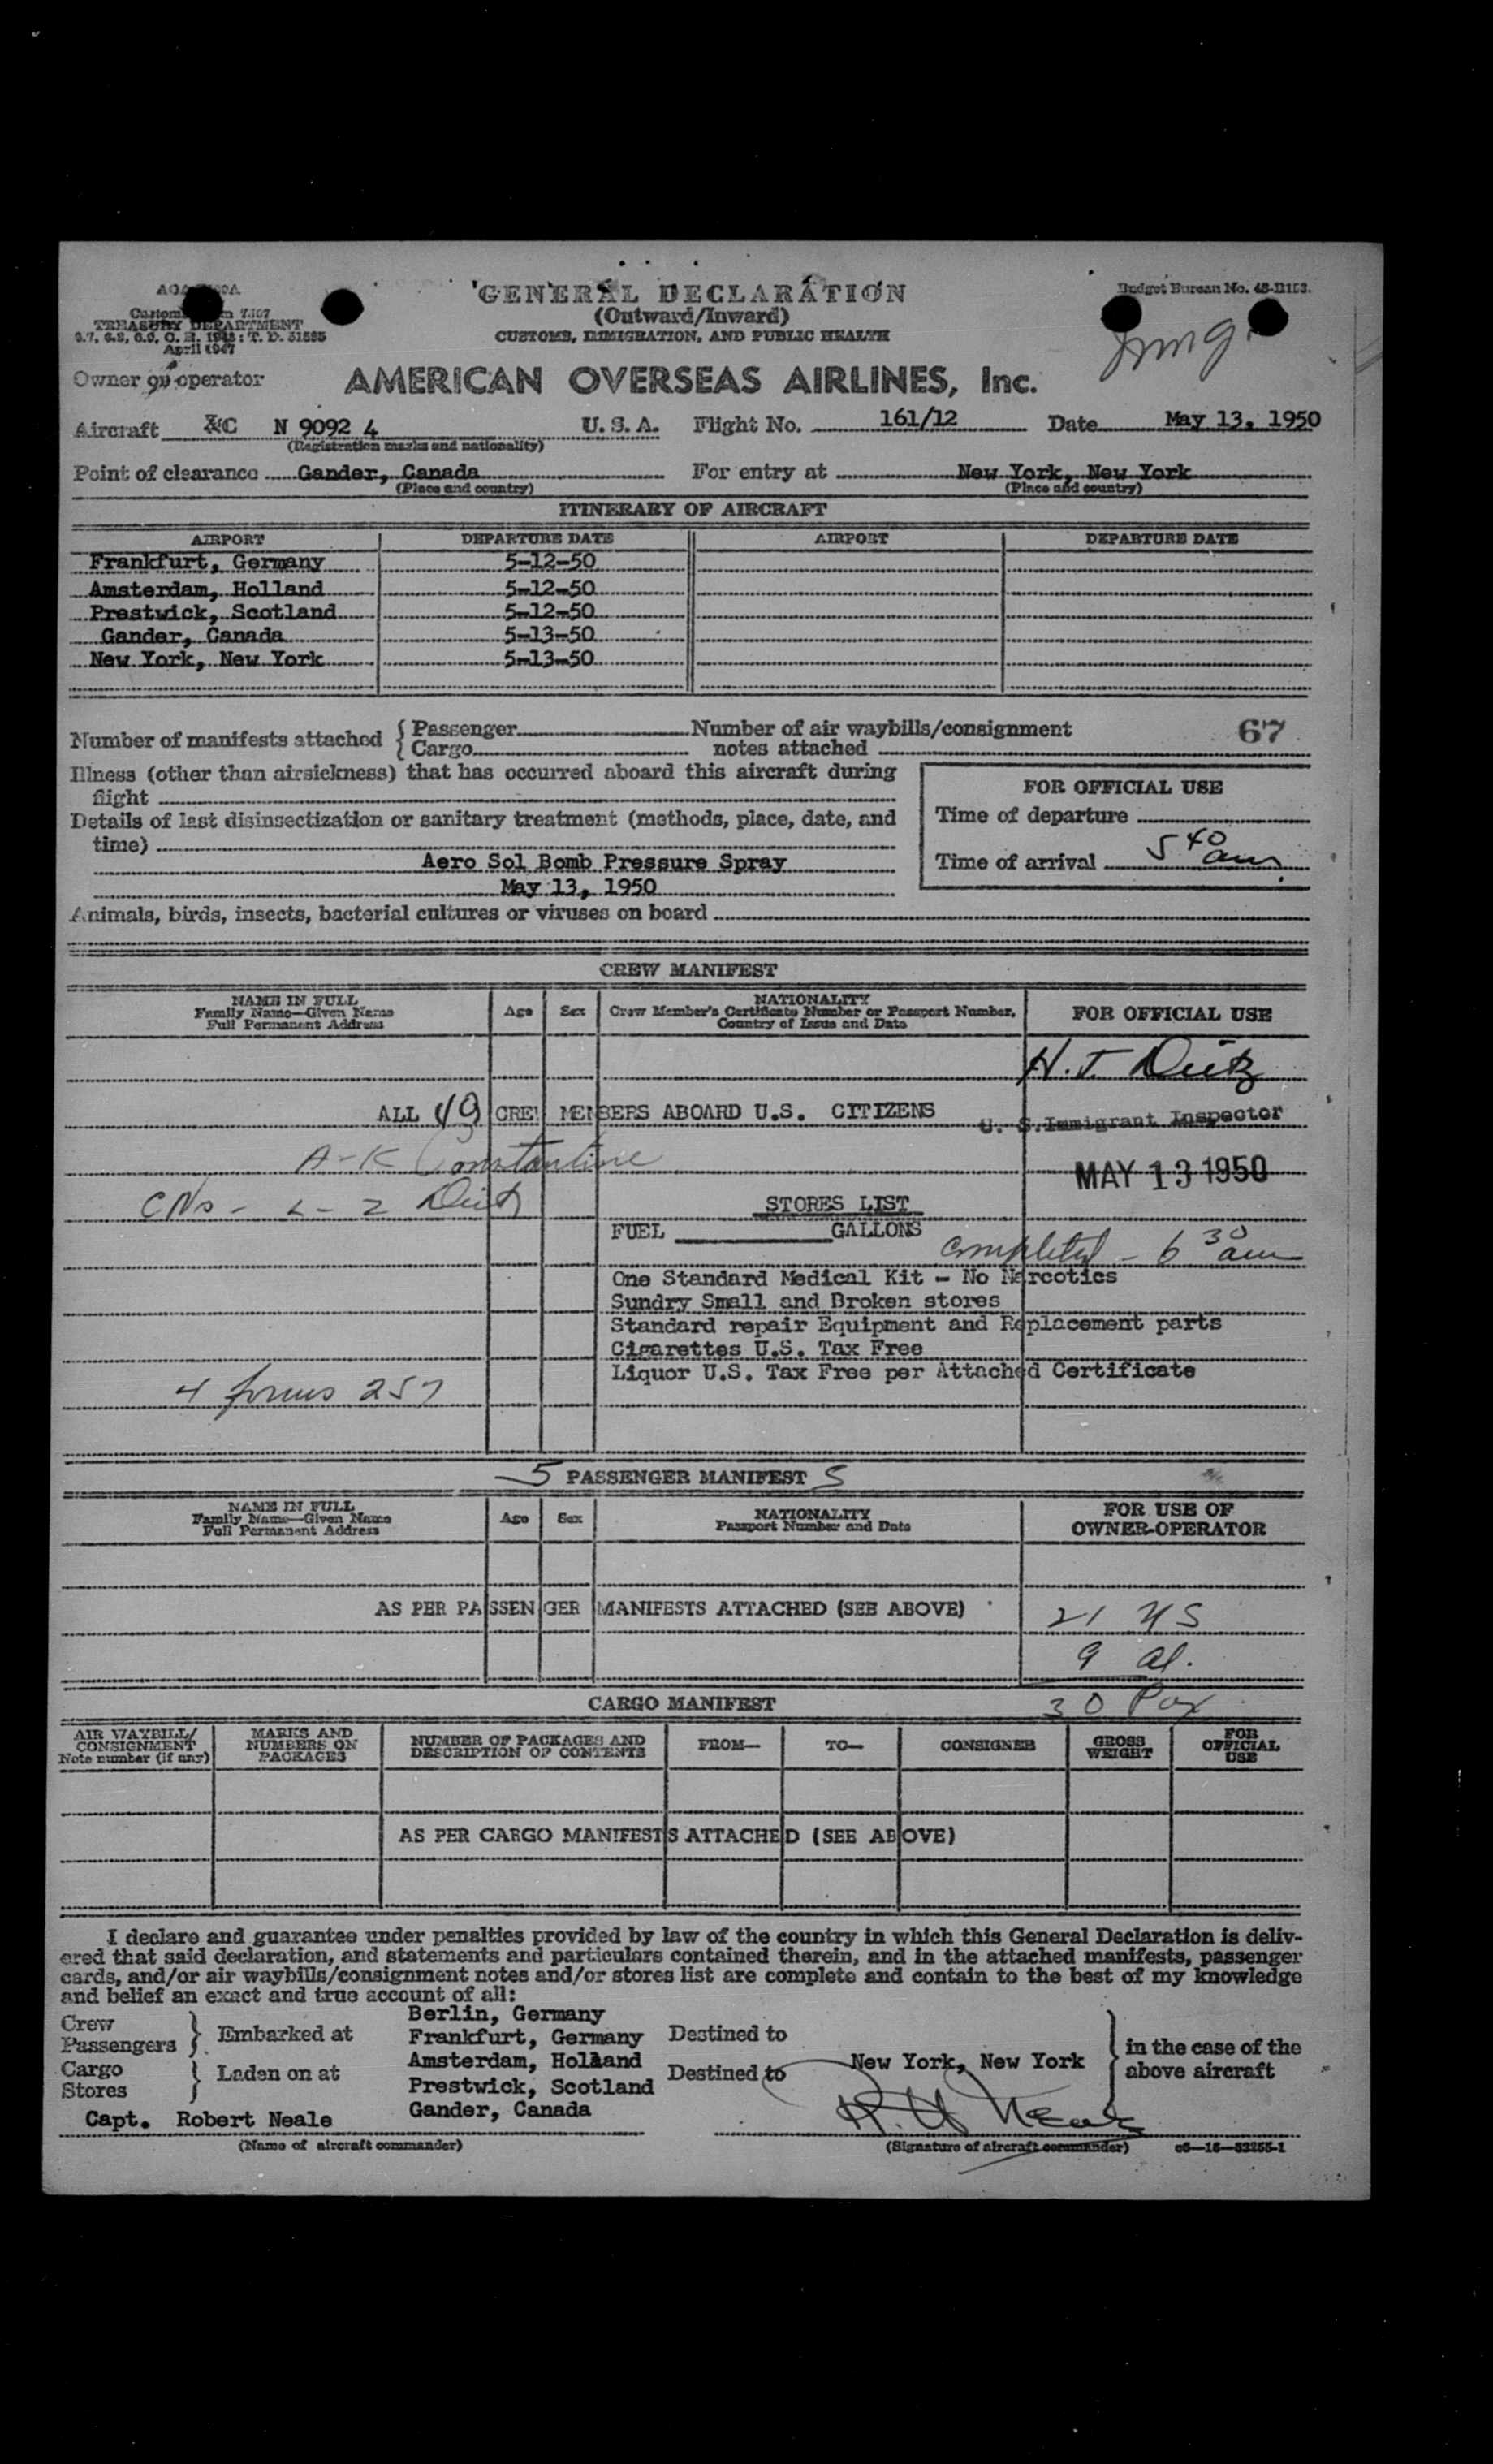 GENERAL DECLARATION
(Outward/Inward)
CUSTOMS, IMMIGRATION, AND PUBLIC HEALTH
Budget Bureau No.
TREASURY DEPARTMENT
April 1947
Owner or operator AMERICAN OVERSEAS AIRLINES, Inc.
Aircraft NC N 9092 4 U. S. A. Flight No. 161/12 Date May 13, 1950
(Registration marks and nationality)
Point of clearance Gander, Canada For entry at New York, New York
(Place and country) (Place and country)
ITINERARY OF AIRCRAFT
AIRPORT DEPARTURE DATE AIRPORT DEPARTURE DATE
Frankfurt, Germany 5-12-50
Amsterdam, Holland 5-12-50
Prestwick, Scotland 5-12-50
Gander, Canada 5-13-50
New York, New York 5-13-50
Number of manifests attached { Passenger Number of air waybills/consignment 67
Cargo notes attached
Illness (other than airsickness) that has occurred aboard this aircraft during
flight
FOR OFFICIAL USE
Details of last disinsectization or sanitary treatment (methods, place, date, and
time)
Time of departure
Aero Sol Bomb Pressure Spray
Time of arrival 5 40 am
May 13, 1950
Animals, birds, insects, bacterial cultures or viruses on board
CREW MANIFEST
NAME IN FULL
Family Name—Given Name
Full Permanent Address
Age Sex
NATIONALITY
Crew Member's Certificate Number or Passport Number,
Country of Issue and Date
FOR OFFICIAL USE
H. J. Deitz
ALL CREW MEMBERS ABOARD U.S. CITIZENS
U. S. Immigrant Inspector
A-K Constantine
MAY 13 1950
L - Z Deitz
STORES LIST
FUEL GALLONS
Completed - 6 30 am
One Standard Medical Kit - No Narcotics
Sundry Small and Broken stores
Standard repair Equipment and Replacement parts
Cigarettes U.S. Tax Free
Liquor U.S. Tax Free per Attached Certificate
4 forms 257
5 PASSENGER MANIFEST S
NAME IN FULL
Family Name—Given Name
Full Permanent Address
Age Sex
NATIONALITY
Passport Number and Date
FOR USE OF
OWNER-OPERATOR
AS PER PASSENGER MANIFESTS ATTACHED (SEE ABOVE)
21 US
9 al.
30 Pax
CARGO MANIFEST
AIR WAYBILL/
CONSIGNMENT
Note number (if any)
MARKS AND
NUMBERS ON
PACKAGES
NUMBER OF PACKAGES AND
DESCRIPTION OF CONTENTS
FROM— TO— CONSIGNEE
GROSS
WEIGHT
FOR
OFFICIAL
USE
AS PER CARGO MANIFESTS ATTACHED (SEE ABOVE)
I declare and guarantee under penalties provided by law of the country in which this General Declaration is deliv-
ered that said declaration, and statements and particulars contained therein, and in the attached manifests, passenger
cards, and/or air waybills/consignment notes and/or stores list are complete and contain to the best of my knowledge
and belief an exact and true account of all:
Crew
Passengers } Embarked at
Cargo
Stores } Laden on at
Berlin, Germany
Frankfurt, Germany
Amsterdam, Holland
Prestwick, Scotland
Gander, Canada
Destined to
Destined to New York, New York
in the case of the
above aircraft
Capt. Robert Neale
R. H. Neale
(Name of aircraft commander) (Signature of aircraft commander) c6—16—52255-1